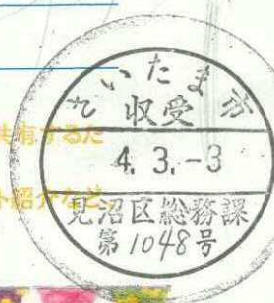 さいたま市
収受
4.3.-3
見沼区総務課
第1048号
共有するた
ト紹介など